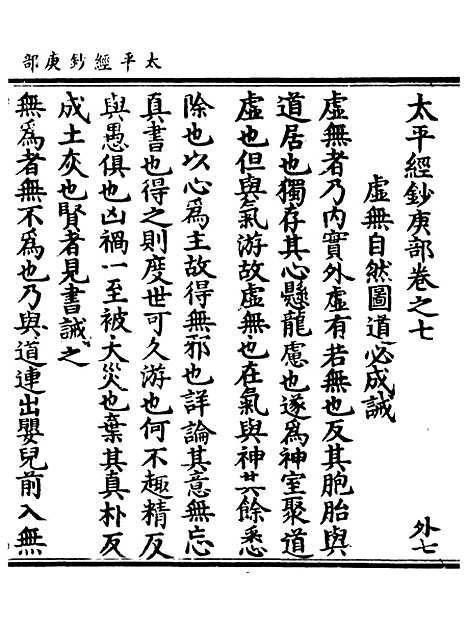 太平經鈔庚部
太平經鈔庚部卷之七　外七
虛無自然圖道必成誡
虛無者乃內實外虛有若無也反其胞胎與
道居也獨存其心懸龍慮也遂為神室聚道
虛也但與氣游故虛無也在氣與神其餘悉
除也以心為主故得無邪也詳論其意無忘
真書也得之則度世可久游也何不趣精反
與愚俱也凶禍一至被大災也棄其真朴反
成土灰也賢者見書誡之
無為者無不為也乃與道連出嬰兒前入無